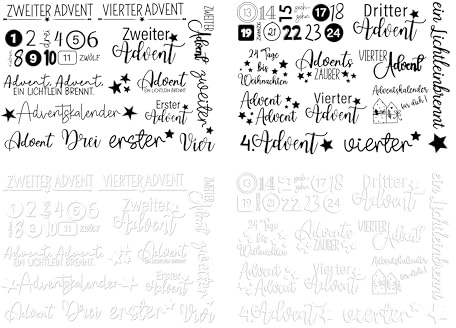 ZWEITER ADVENT
VIERTER ADVENT
ZWEITER
Advent
zweiter
1 2 drei 4 5 6
8 9 10 11 ZWÖLF
Zweiter
Advent
Advent, Advent,
EIN LICHTLEIN BRENNT.
Advent,
EIN LICHTLEIN BRENNT.
Adventskalender
Erster
Advent
Advent
Drei
erster
Vier
13 14 15 17 18
19 21 22 23 24
Dritter
Advent
24 Tage
bis
Weihnachten
Advents
ZAUBER
VIERTER
Advent
Advent
Advent
Advent
Advent
Vierter
Advent
Adventskalender
für dich!
4 Advent
vierter
ein Lichtlein brennt
ZWEITER ADVENT
VIERTER ADVENT
ZWEITER
Advent
zweiter
1 2 drei 4 5 6
8 9 10 11 ZWÖLF
Zweiter
Advent
Advent, Advent,
EIN LICHTLEIN BRENNT.
Advent,
EIN LICHTLEIN BRENNT.
Adventskalender
Erster
Advent
Advent
Drei
erster
Vier
13 14 15 17 18
19 21 22 23 24
Dritter
Advent
24 Tage
bis
Weihnachten
Advents
ZAUBER
VIERTER
Advent
Advent
Advent
Advent
Advent
Vierter
Advent
Adventskalender
für dich!
4 Advent
vierter
ein Lichtlein brennt